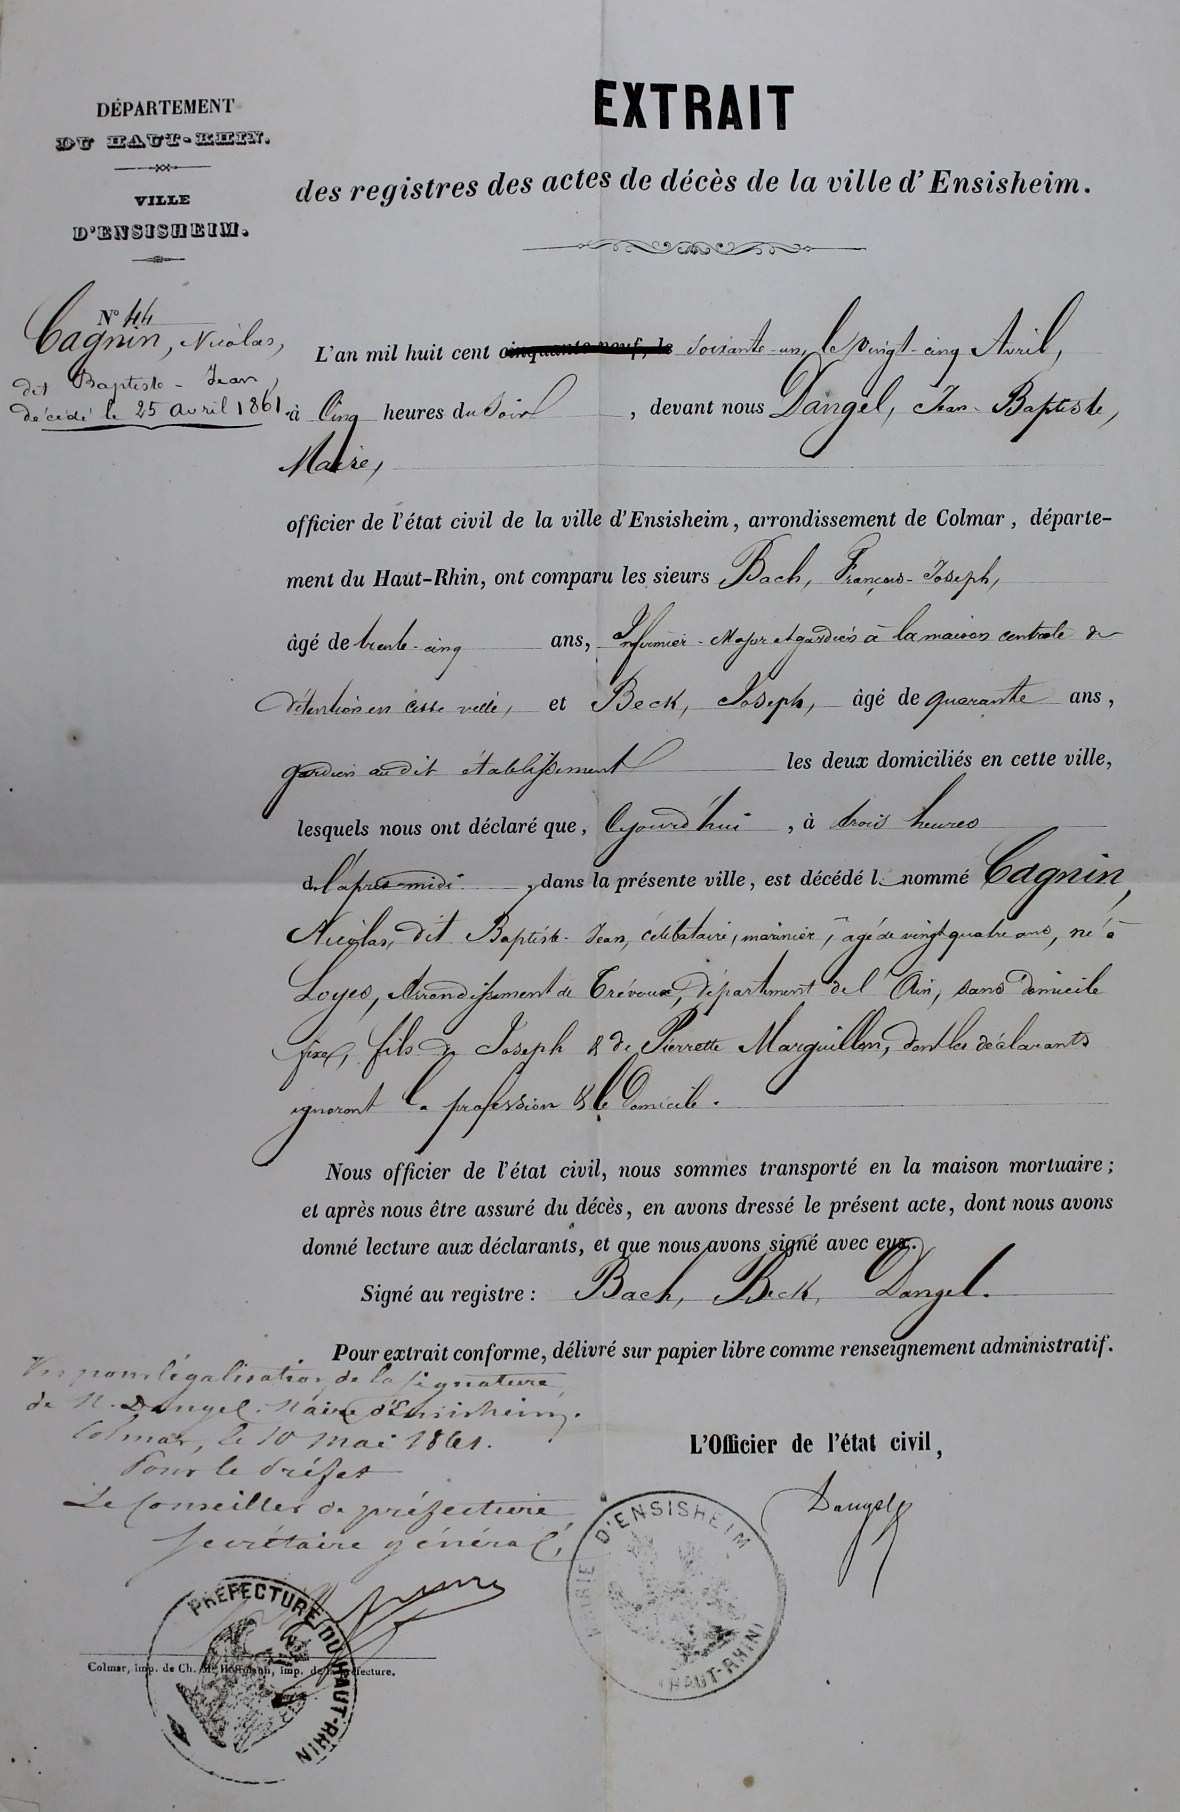 DÉPARTEMENT
DU HAUT-RHIN.
VILLE
D'ENSISHEIM.
EXTRAIT
des registres des actes de décès de la ville d'Ensisheim.
N° 44
Cagnin, Nicolas,
dit Baptiste-Jean,
décédé le 25 avril 1861.
L'an mil huit cent cinquante-neuf, le soixante-un, le vingt-cinq Avril,
à Cinq heures du Soir, devant nous Dangel, Jean-Baptiste,
Maire,
officier de l'état civil de la ville d'Ensisheim, arrondissement de Colmar, départe-
ment du Haut-Rhin, ont comparu les sieurs Bach, François-Joseph,
âgé de trente-cinq ans, Infirmier-Major et gardien à la maison centrale de
détention en cette ville, et Beck, Joseph, âgé de quarante ans,
gardien au dit établissement les deux domiciliés en cette ville,
lesquels nous ont déclaré que, cejourd'hui, à trois heures
de l'après-midi, dans la présente ville, est décédé le nommé Cagnin,
Nicolas, dit Baptiste-Jean, célibataire, marinier, âgé de vingt quatre ans, né à
Loyes, Arrondissement de Trévoux, département de l'Ain, sans domicile
fixe, fils de Joseph & de Pierrette Marguillon, dont les déclarants
ignorent la profession & le domicile.
Nous officier de l'état civil, nous sommes transporté en la maison mortuaire;
et après nous être assuré du décès, en avons dressé le présent acte, dont nous avons
donné lecture aux déclarants, et que nous avons signé avec eux.
Signé au registre: Bach, Beck, Dangel.
Pour extrait conforme, délivré sur papier libre comme renseignement administratif.
Vu pour légalisation de la signature
de M. Dangel, Maire d'Ensisheim.
Colmar, le 10 Mai 1861.
Pour le Préfet
Le Conseiller de préfecture
Secrétaire général,
L'Officier de l'état civil,
Dangel
MAIRIE D'ENSISHEIM
(HAUT-RHIN)
PRÉFECTURE DU HAUT-RHIN
Colmar, imp. de Ch. M. Hoffmann, imp. de la Préfecture.